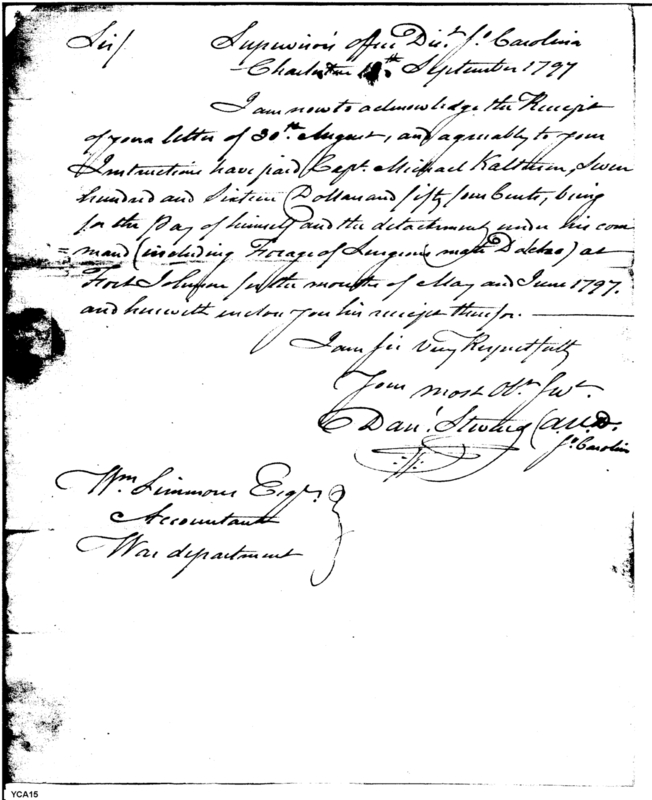 Sir/ Supervisor's office Dis.t S.o Carolina
Charleston September 1797
I am now to acknowledge the Receipt
of your letter of 30th August, and agreeably to your
Instructions have paid Capt. Michael Kalteisen, Seven
hundred and Sixteen Dollars and fifty four Cents, being
for the Pay of himself and the detachment under his com
=mand (including Forage of Surgeons mate) at
Fort Johnson for the months of May and June 1797.
and herewith enclose you his receipt therefor.
I am Sir Very Respectfully
Your most Ob.t Ser.t
Dan.l Stevens
S.o Carolina
Wm. Simmons Esq.r
Accountant
War department
YCA15